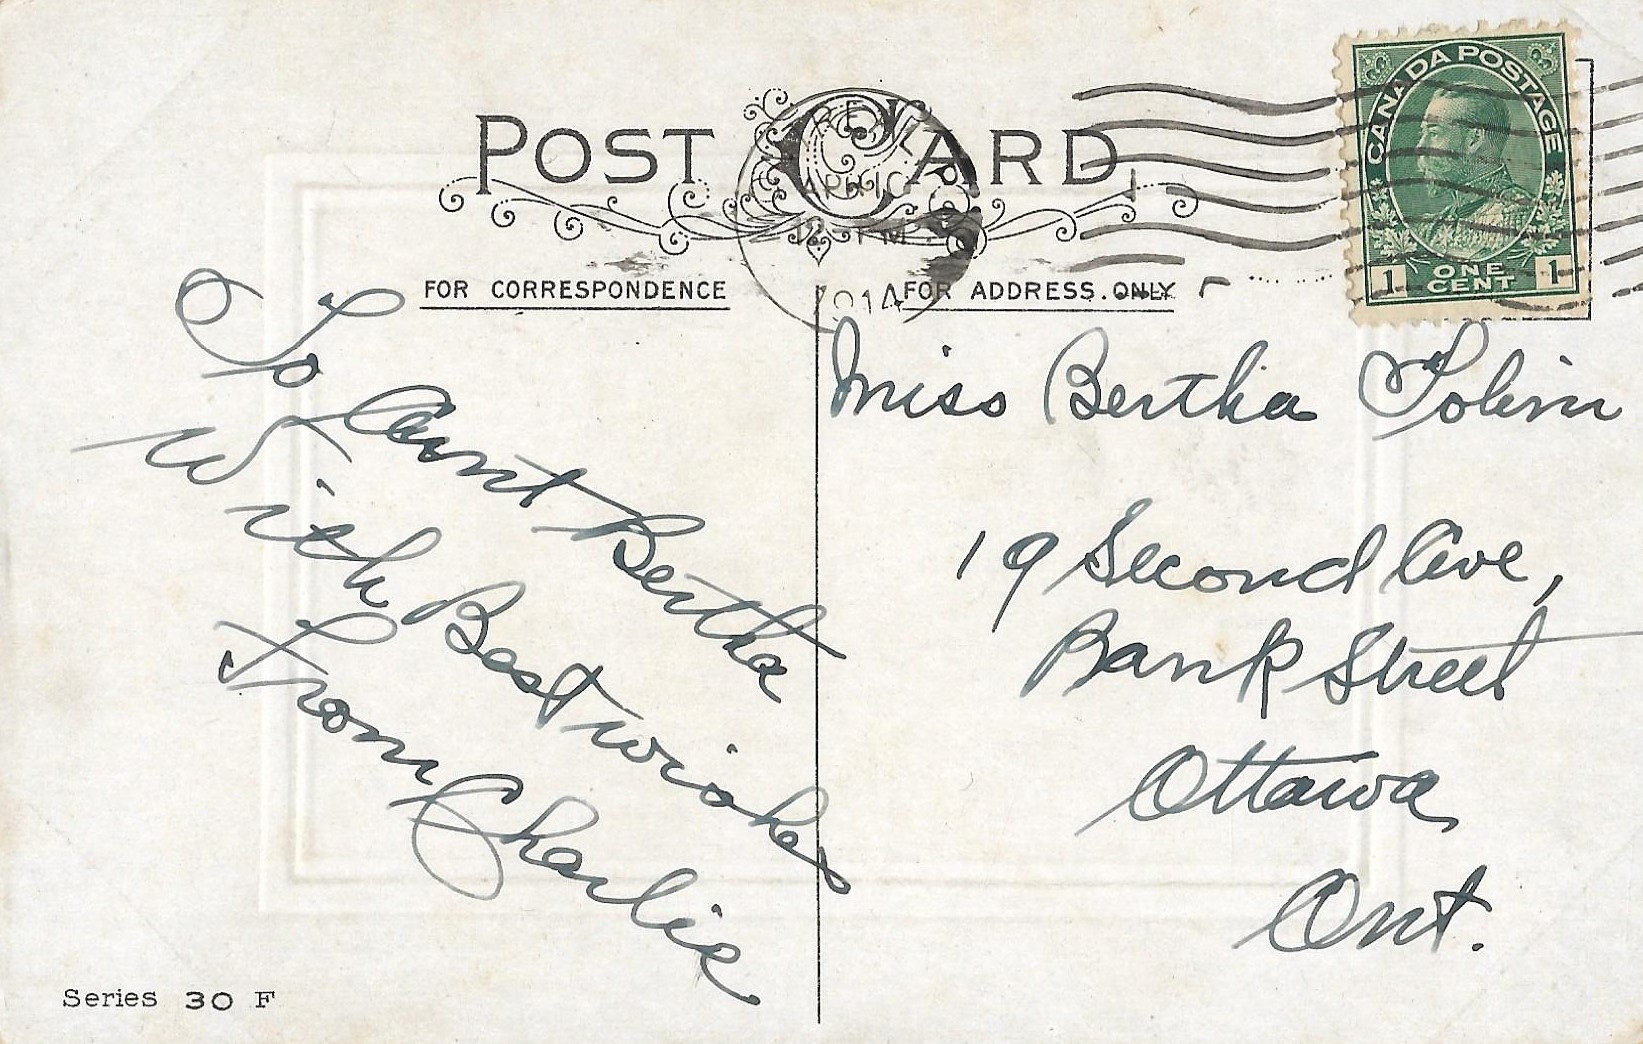 POST CARD
CANADA POSTAGE
1 ONE CENT 1
12 - PM
1914
FOR CORRESPONDENCE
FOR ADDRESS ONLY
To Aunt Bertha
With Best wishes
From Charlie
Miss Bertha Tobin
19 Second Ave,
Bank Street
Ottawa
Ont.
Series 30 F